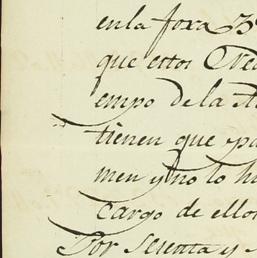 en la foxa 3
que estos
empo de la
tienen que pa
men y no lo hi
cargo de ellos
Por sesenta y